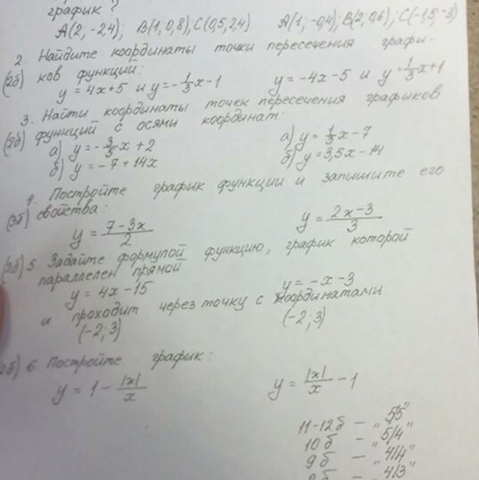 график?
A(2; -2,4); B(1; 0,8); C(0,5; 2,4) A(1; -0,4); B(2; 0,6); C(-1,5; -3)
2. Найдите координаты точки пересечения графи-
(2б) ков функций:
y = 4x+5 и y = -1/3x-1 y = -4x-5 и y = 1/3x+1
3. Найти координаты точек пересечения графиков
(2б) функций с осями координат:
а) y = -3/5x+2 а) y = 1/3x-7
б) y = -7+14x б) y = 3,5x-14
4. Постройте график функции и запишите его
(3б) свойства:
y = (7-3x)/2 y = (2x-3)/3
5. Задайте формулой функцию, график которой
параллелен прямой
y = 4x-15 y = -x-3
и проходит через точку с координатами
(-2; 3) (-2; 3)
6. Постройте график:
y = 1 - |x|/x y = |x|/x - 1
11-12б – „5/5"
10б – „5/4"
9б – „4/4"
8б – „4/3"